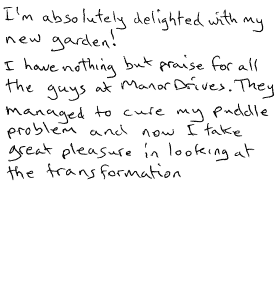 I'm absolutely delighted with my
new garden!
I have nothing but praise for all
the guys at Manor Drives. They
managed to cure my puddle
problem and now I take
great pleasure in looking at
the transformation